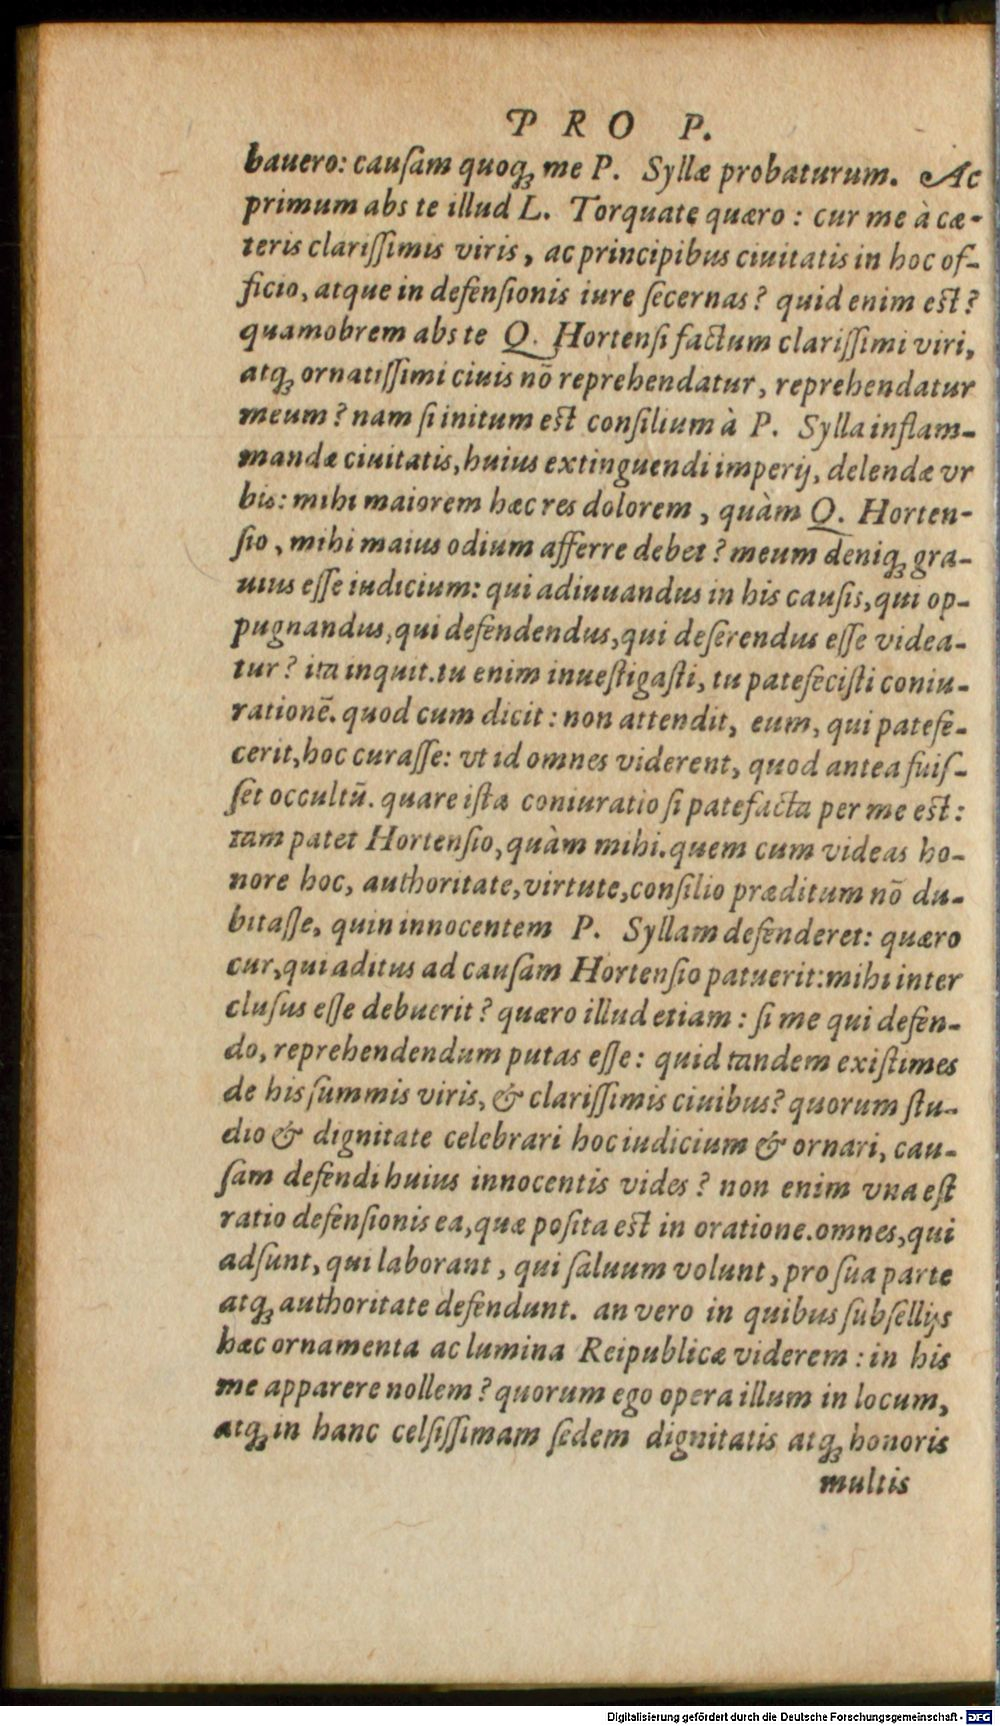 PRO P.
bauero: cauſam quoq́ꝫ me P. Syllæ probaturum. Ac
primum abs te illud L. Torquate quæro: cur me à cæ-
teris clariſſimis viris, ac principibus ciuitatis in hoc of-
ficio, atque in defenſionis iure ſecernas? quid enim eſt?
quamobrem abs te Q. Hortenſi factum clariſſimi viri,
atq́ꝫ ornatiſſimi ciuis nō reprehendatur, reprehendatur
meum? nam ſi initum eſt conſilium à P. Sylla inflam-
mandæ ciuitatis, huius extinguendi imperij, delendæ vr
bis: mihi maiorem hæc res dolorem, quàm Q. Horten-
ſio, mihi maius odium afferre debet? meum deniq́ꝫ gra-
uius eſſe iudicium: qui adiuuandus in his cauſis, qui op-
pugnandus, qui defendendus, qui deſerendus eſſe videa-
tur? ita inquit. tu enim inueſtigaſti, tu patefeciſti coniu-
rationē. quod cum dicit: non attendit, eum, qui patefe-
cerit, hoc curaſſe: vt id omnes viderent, quod antea fuiſ-
ſet occultū. quare iſta coniuratio ſi patefacta per me eſt:
tam patet Hortenſio, quàm mihi. quem cum videas ho-
nore hoc, authoritate, virtute, conſilio præditum nō du-
bitaſſe, quin innocentem P. Syllam defenderet: quæro
cur, qui aditus ad cauſam Hortenſio patuerit: mihi inter
cluſus eſſe debuerit? quæro illud etiam: ſi me qui defen-
do, reprehendendum putas eſſe: quid tandem exiſtimes
de his ſummis viris, & clariſſimis ciuibus? quorum ſtu-
dio & dignitate celebrari hoc iudicium & ornari, cau-
ſam defendi huius innocentis vides? non enim vna eſt
ratio defenſionis ea, quæ poſita eſt in oratione. omnes, qui
adſunt, qui laborant, qui ſaluum volunt, pro ſua parte
atq́ꝫ authoritate defendunt. an vero in quibus ſubſellijs
hæc ornamenta ac lumina Reipublicæ viderem: in his
me apparere nollem? quorum ego opera illum in locum,
atq́ꝫ in hanc celſiſſimam ſedem dignitatis atq́ꝫ honoris
multis
Digitalisierung gefördert durch die Deutsche Forschungsgemeinschaft - DFG